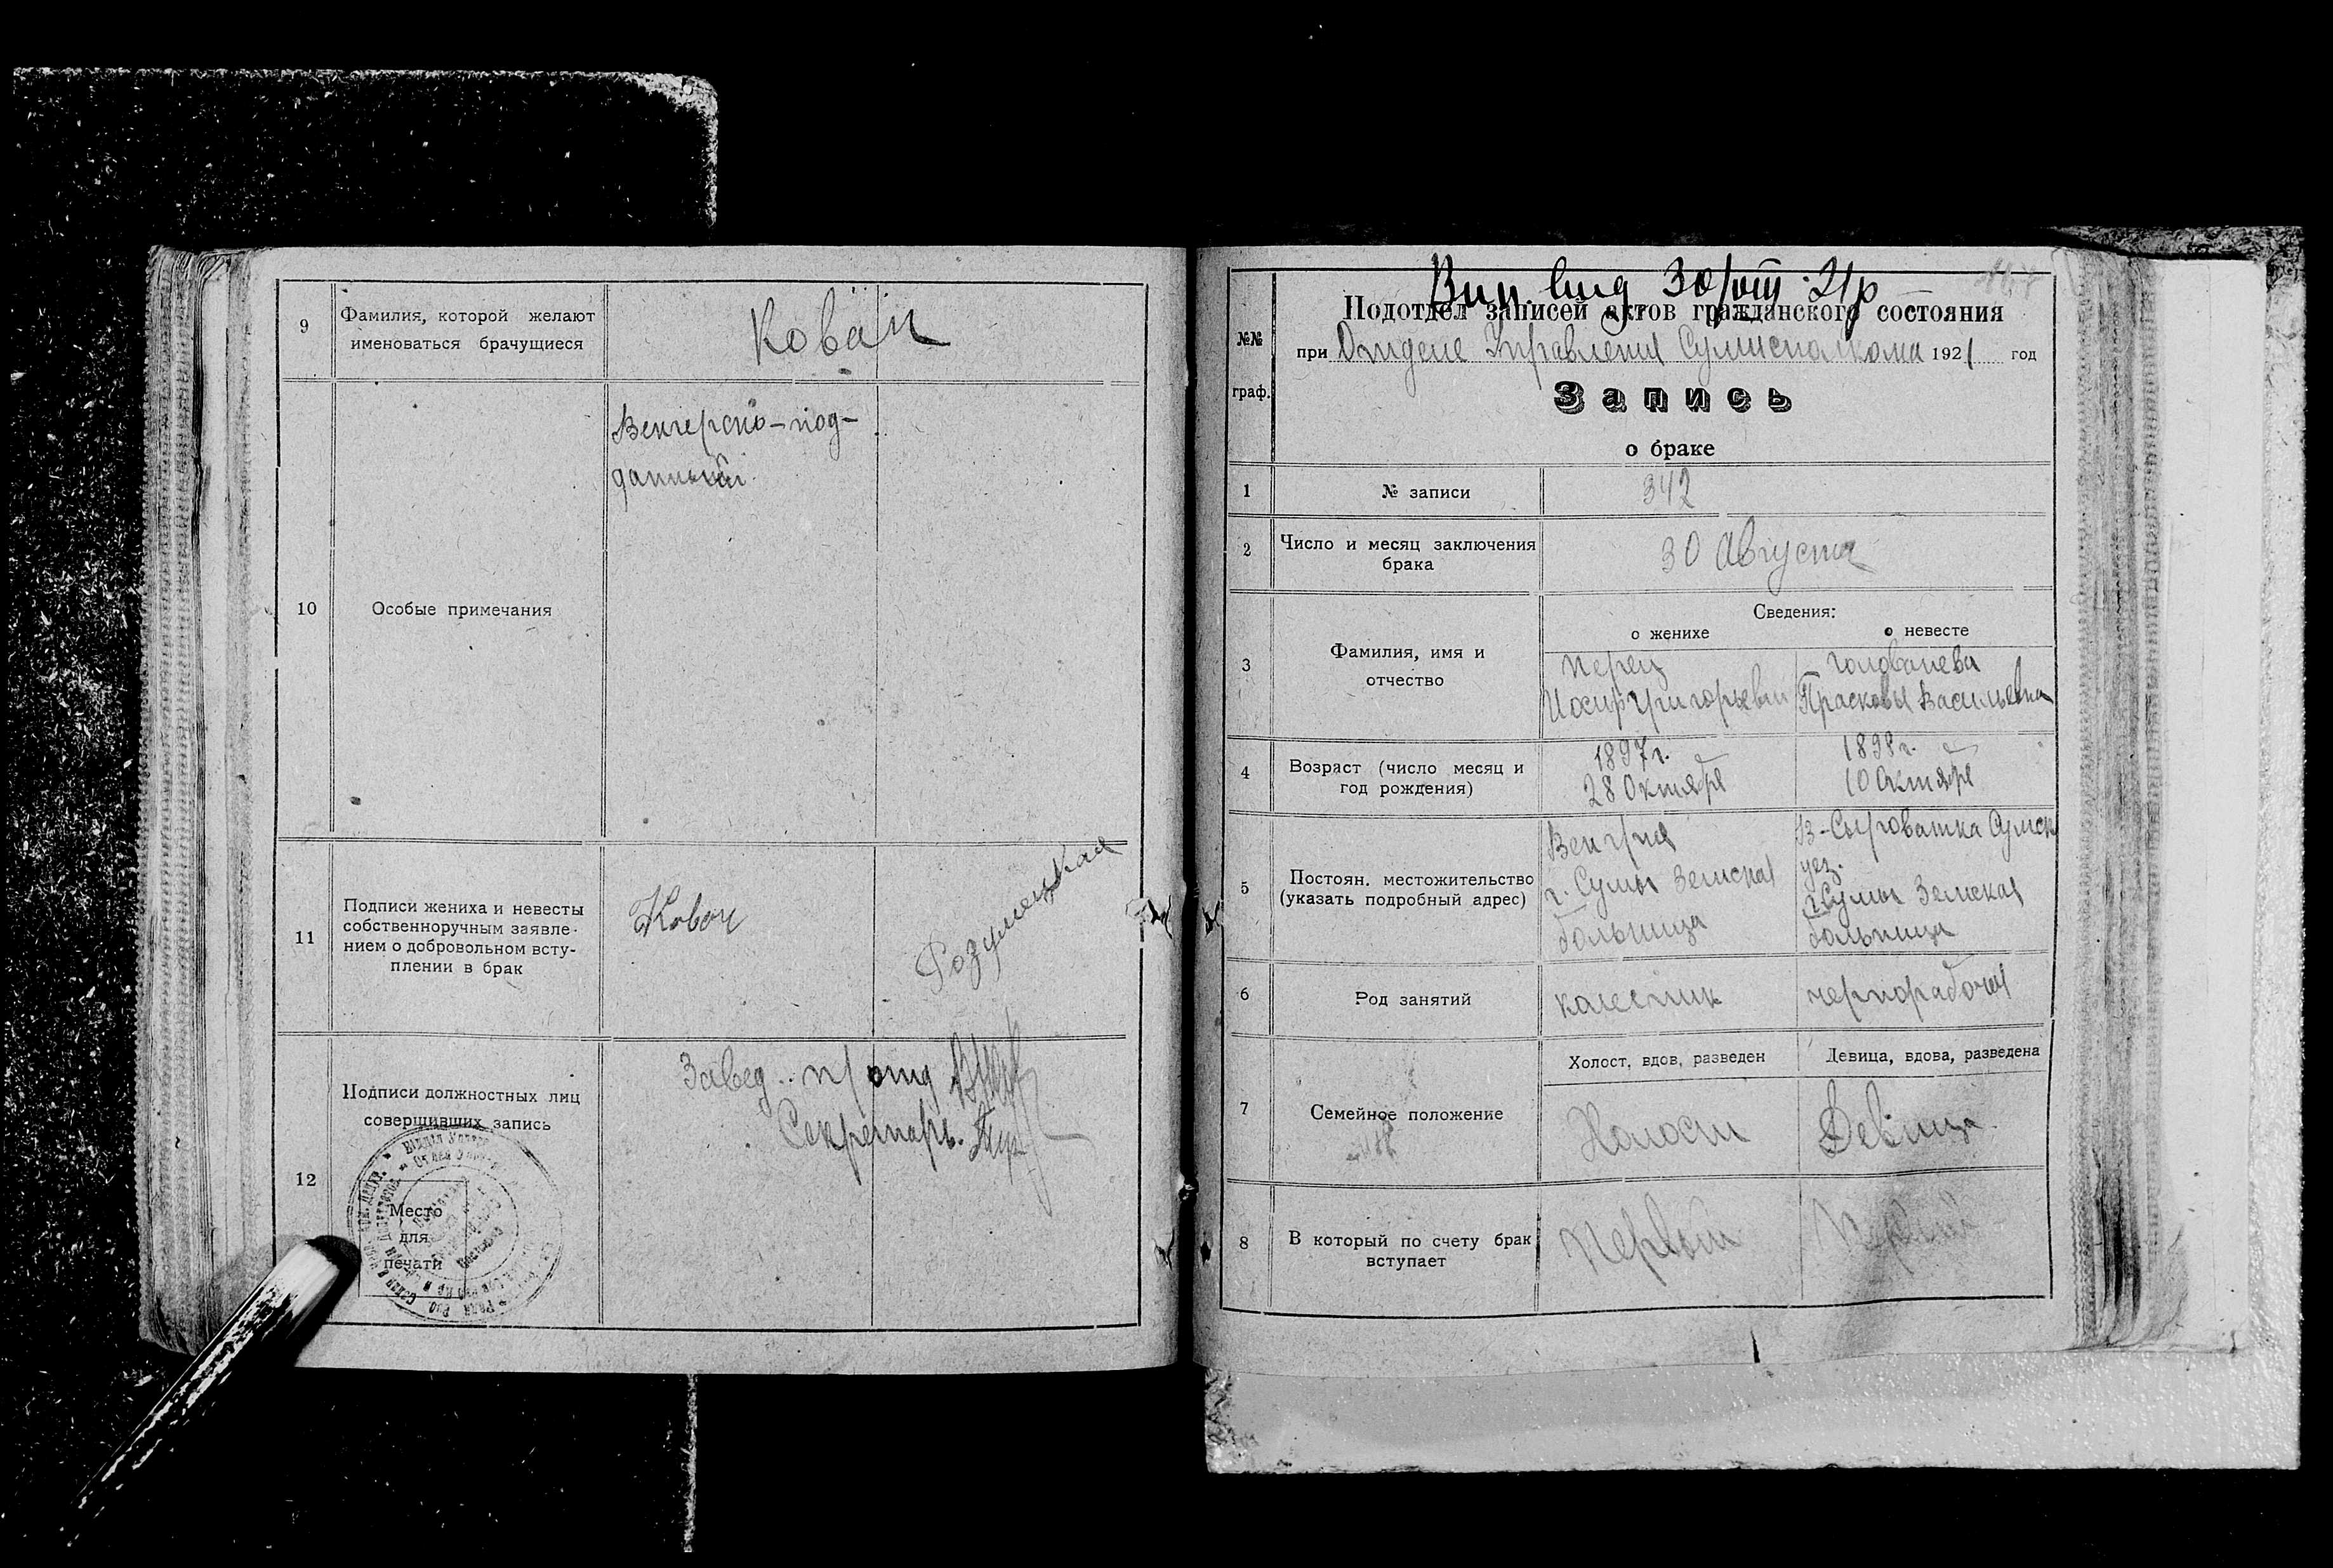 9
Фамилия, которой желают
именоваться брачущиеся
Ковач
10
Особые примечания
Венгерско-под-
данный
11
Подписи жениха и невесты
собственноручным заявле-
нием о добровольном всту-
плении в брак
Ковач
Розумецкая
12
Подписи должностных лиц
совершивших запись
Завед. п/отд
Секретарь
Место
для
печати
30/VIII 21р
Подотдел записей актов гражданского состояния
№№
граф.
при Отделе Управления Сумисполкома 1921 год
Запись
о браке
1
№ записи
342
2
Число и месяц заключения
брака
30 Августа
Сведения:
о женихе
о невесте
3
Фамилия, имя и
отчество
Перец
Иосиф Григорьевич
Голованева
Прасковья Васильевна
4
Возраст (число месяц и
год рождения)
1897г.
28 Октября
1898г.
10 Октября
5
Постоян. местожительство
(указать подробный адрес)
Венгрия
г. Сумы Земская
больница
В-Сыроватка Сумск
уез.
г. Сумы Земская
больница
6
Род занятий
колесник
чернорабочая
Холост, вдов, разведен
Девица, вдова, разведена
7
Семейное положение
Холост
Девица
8
В который по счету брак
вступает
Первый
Первый